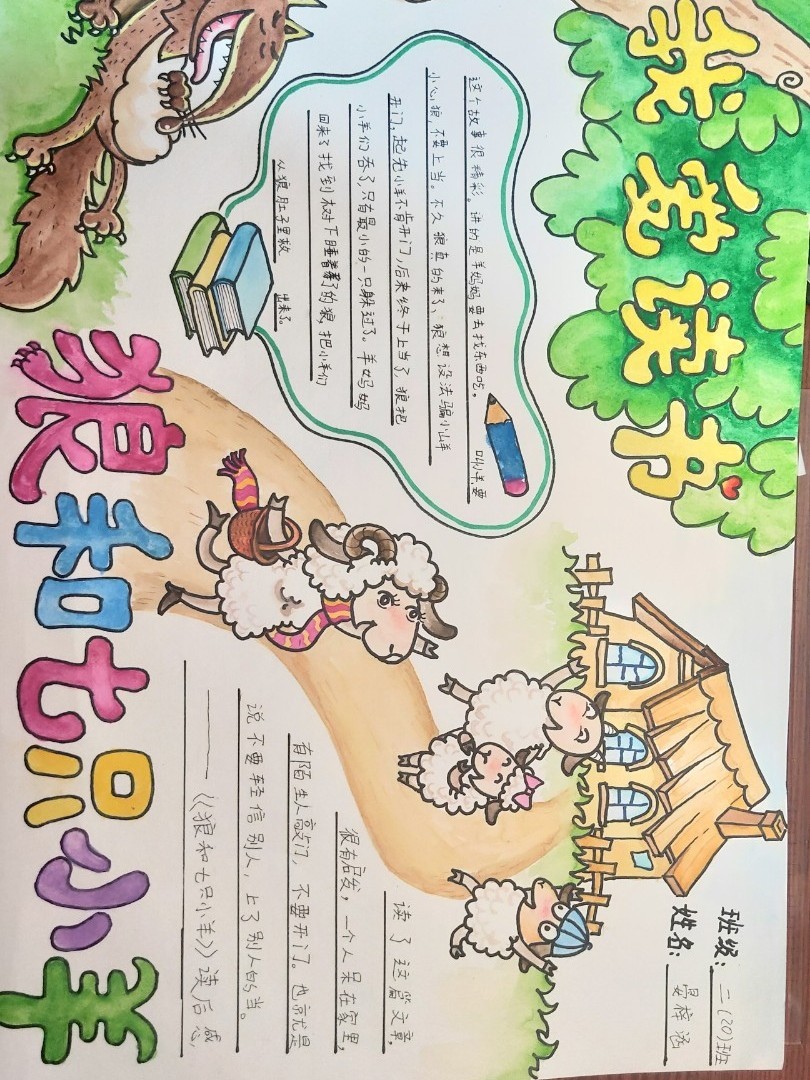 我爱读书
班级:二(20)班
姓名:晏梓涵
这个故事很精彩。讲的是羊妈妈要去找东西吃。叫小羊要
小心狼不要上当。不久狼真的来了、狼想设法骗小山羊
开门。起先小羊不肯开门,后来终于上当了,狼把
小羊们吞了,只有最小的一只躲过了。羊妈妈
回来了找到树下睡着了的狼,把小羊们
从狼肚子里救出来了。
读了这篇文章,
很有启发,一个人呆在家里,
有陌生人敲门,不要开门。也就是
说不要轻信别人,上了别人的当。
——《狼和七只小羊》读后感
狼和七只小羊